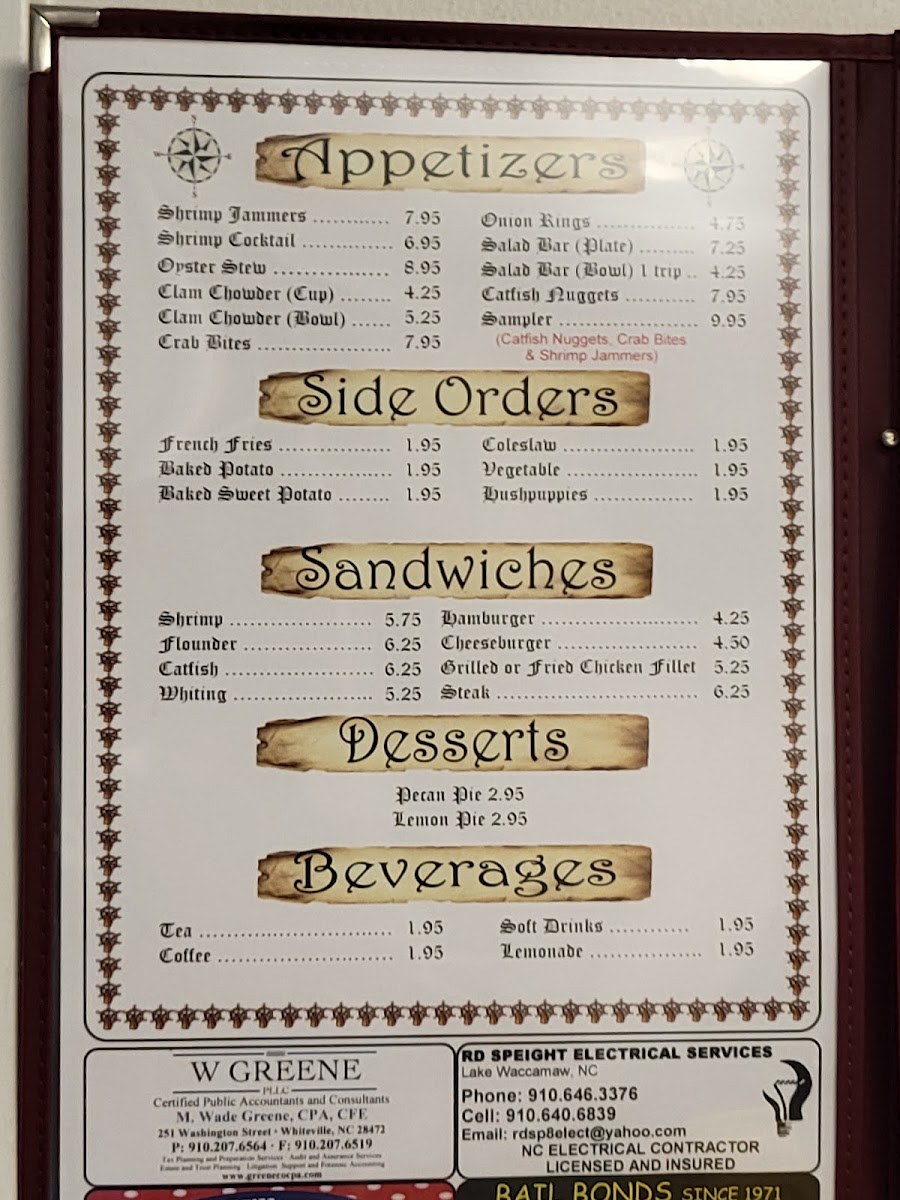 Appetizers
Shrimp Jammers ........... 7.95
Shrimp Cocktail ............. 6.95
Oyster Stew ................. 8.95
Clam Chowder (Cup) ........ 4.25
Clam Chowder (Bowl) ...... 5.25
Crab Bites ................... 7.95
Onion Rings ............... 4.75
Salad Bar (Plate) ......... 7.25
Salad Bar (Bowl) 1 trip .. 4.25
Catfish Nuggets ........... 7.95
Sampler ..................... 9.95
(Catfish Nuggets, Crab Bites
& Shrimp Jammers)
Side Orders
French Fries ................. 1.95
Baked Potato ................. 1.95
Baked Sweet Potato ........ 1.95
Coleslaw .................... 1.95
Vegetable .................... 1.95
Hushpuppies ............... 1.95
Sandwiches
Shrimp ..................... 5.75
Flounder ................... 6.25
Catfish ...................... 6.25
Whiting ..................... 5.25
Hamburger ........................ 4.25
Cheeseburger ..................... 4.50
Grilled or Fried Chicken Fillet 5.25
Steak .............................. 6.25
Desserts
Pecan Pie 2.95
Lemon Pie 2.95
Beverages
Tea ............................. 1.95
Coffee .......................... 1.95
Soft Drinks ............ 1.95
Lemonade ................. 1.95
W GREENE
PLLC
Certified Public Accountants and Consultants
M. Wade Greene, CPA, CFE
251 Washington Street · Whiteville, NC 28472
P: 910.207.6564 · F: 910.207.6519
Tax Planning and Preparation Services Audit and Assurance Services
Estate and Trust Planning Litigation Support and Forensic Accounting
www.greenecocpa.com
RD SPEIGHT ELECTRICAL SERVICES
Lake Waccamaw, NC
Phone: 910.646.3376
Cell: 910.640.6839
Email: rdsp8elect@yahoo.com
NC ELECTRICAL CONTRACTOR
LICENSED AND INSURED
BAIL BONDS SINCE 1971